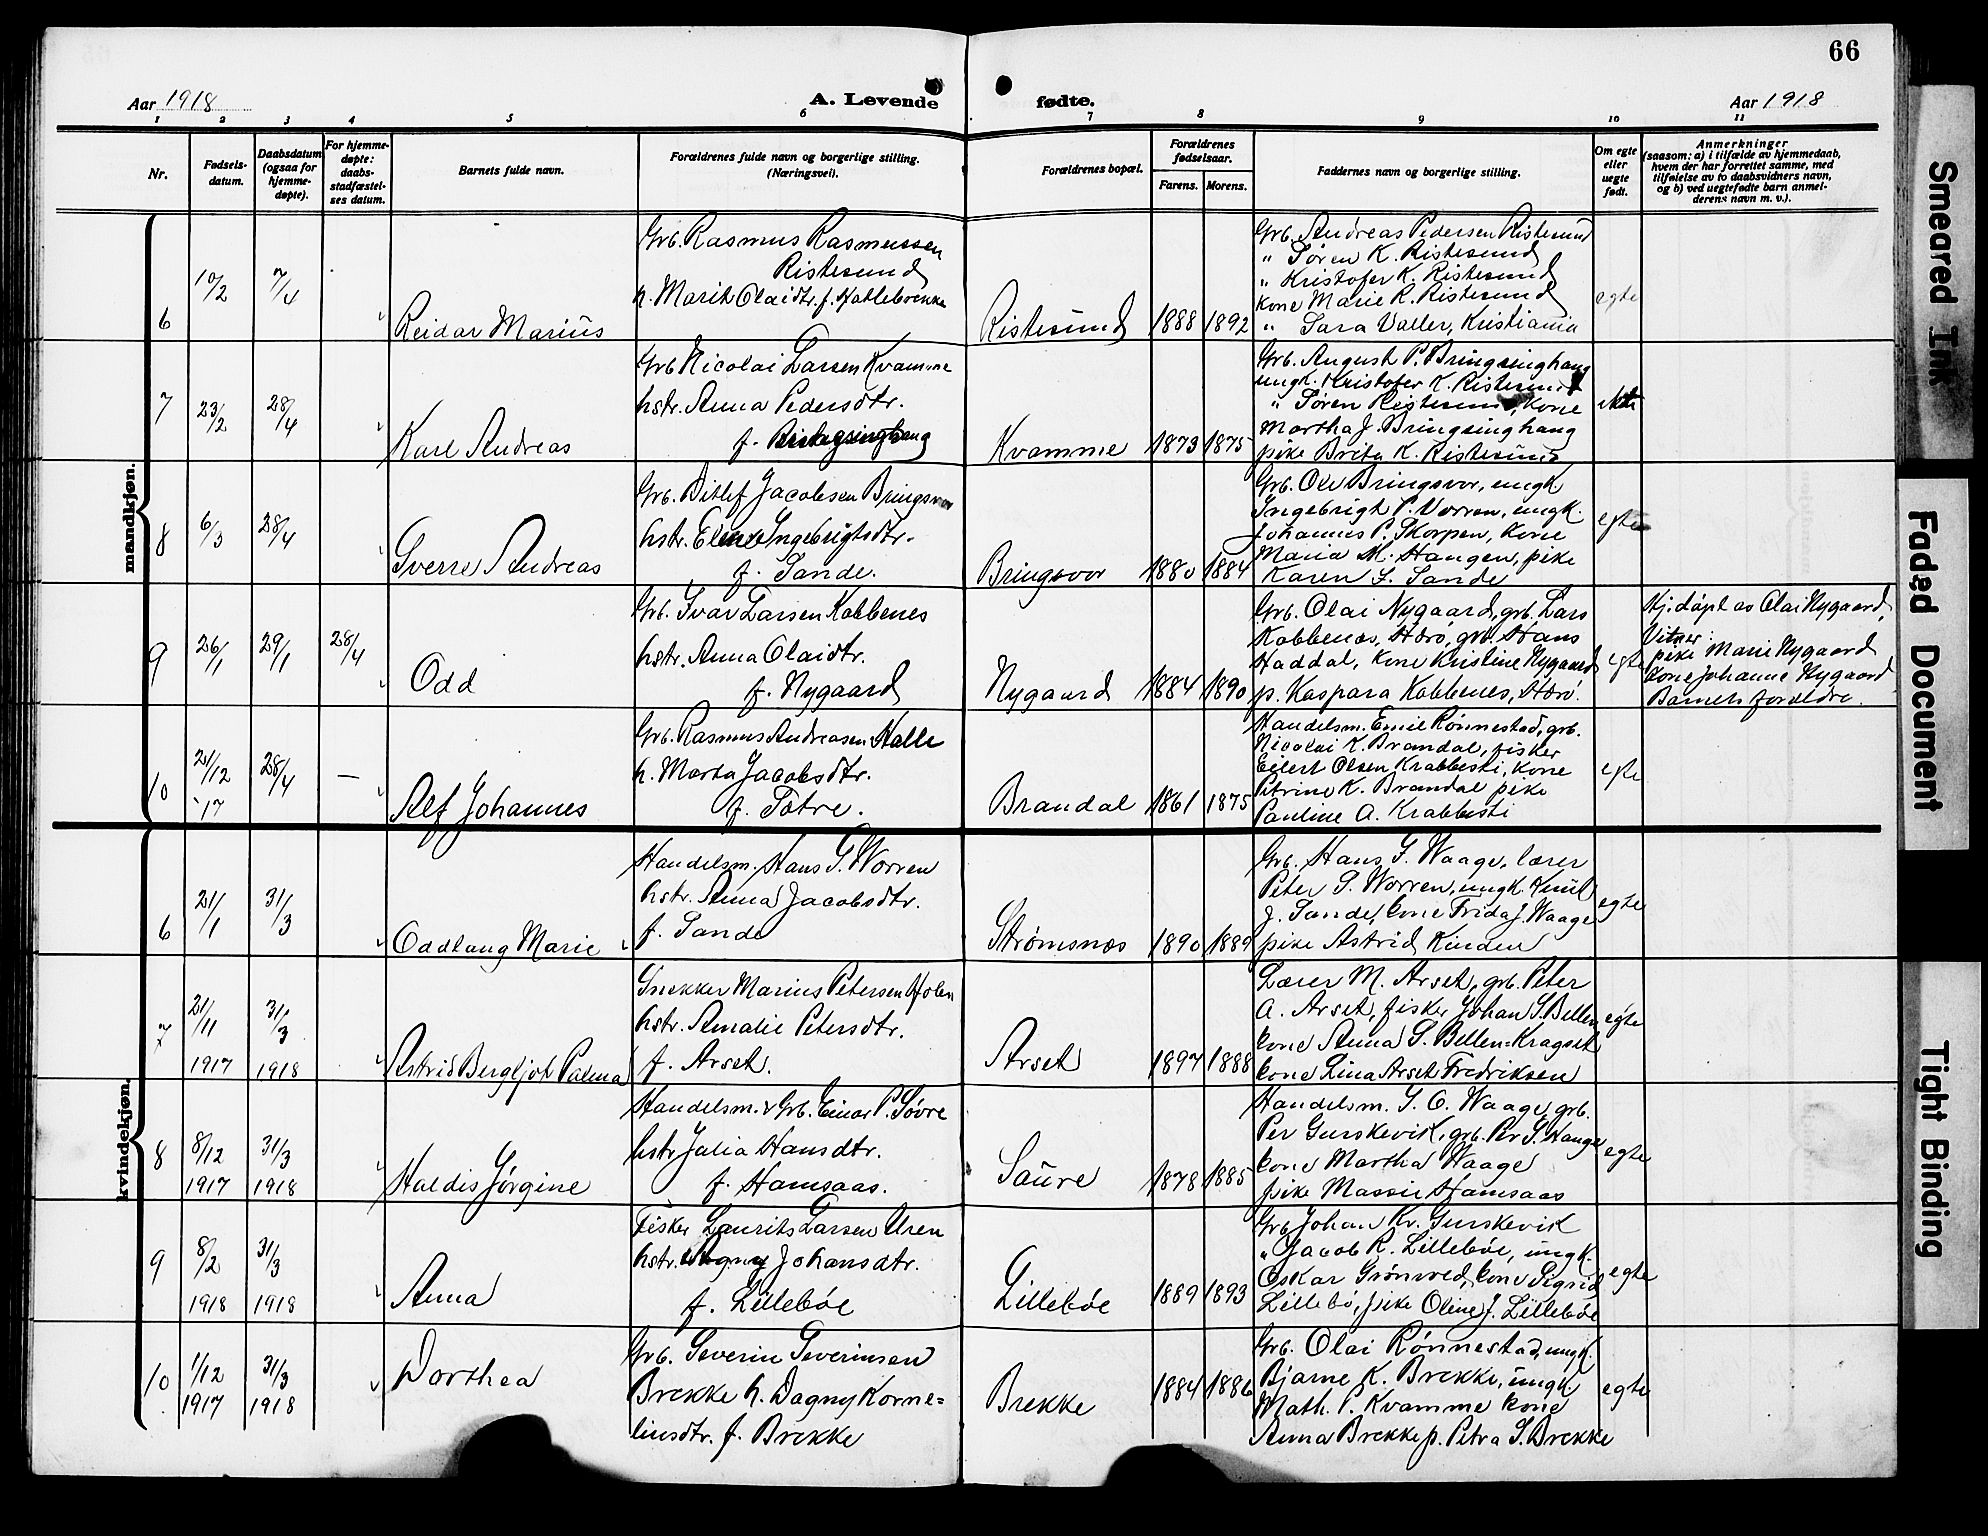 66
Aar 1918
A. Levende
fødte.
Aar 1918
1 2 3 4 5 6 7 8 9 10 11
Nr.
Fødsels-
datum.
Daabsdatum
(ogsaa for
hjemme-
døpte).
For hjemme-
døpte:
daabs-
stadfæstel-
ses datum.
Barnets fulde navn.
Forældrenes fulde navn og borgerlige stilling.
(Næringsvei).
Forældrenes bopæl.
Forældrenes
fødselsaar.
Farens. Morens.
Faddernes navn og borgerlige stilling.
Om egte
eller
uegte
født.
Anmerkninger
(saasom: a) i tilfælde av hjemmedaab,
hvem der har forrettet samme, med
tilføielse av to daabsvidners navn,
og b) ved uegtefødte barn anmel-
derens navn m. v.).
mandkjøn.
6
10/2
7/4
Reidar Marius
Grb. Rasmus Rasmussen
Ristesund
h. Marit Olaidtr. f. Hatlebrekke
Ristesund
1888 1892
Grb. Andreas Pedersen Ristesund
" Søren K. Ristesund
" Kristofer K. Ristesund
kone Marie R. Ristesund
" Sara Valler, Kristiania
egte
7
23/2
28/4
Karl Andreas
Grb Nicolai Larsen Kvamme
hstr. Anna Pedersdtr.
f. Bringsinghaug
Kvamme
1873 1875
Grb. August P. Bringsinghaug
ungk. Kristofer K. Ristesund
" Søren Ristesund, kone
Martha J. Bringsinghaug
pike Brita K. Ristesund
ekte
8
6/3
28/4
Sverre Andreas
Grb. Ditlef Jacobsen Bringsvor
hstr. Eline Ingebrigtsdtr.
f. Sande.
Bringsvor
1880 1884
Grb. Ole Bringsvor, ungk.
Ingebrigt P. Vorren, ungk.
Johannes P. Skorpen, kone
Maria M. Haugen, pike
Karen I. Sande
egte
9
26/1
29/1
28/4
Odd
Grb. Ivar Larsen Kobbenes
hstr. Anna Olaidtr.
f. Nygaard
Nygaard
1884 1890
Grb. Olai Nygaard, grb. Lars
Kobbenes, Herö, grb. Hans
Haddal, kone Kristine Nygaard
p. Kaspara Kobbenes, Herö.
egte
Hj. döpt av Olai Nygaard,
Vitner:
pike Marie Nygaard
kone Johanne Nygaard
Barnets foreldre.
10
21/12
'17
28/4
—
Alf Johannes
Grb. Rasmus Andreasen Halle
h. Marta Jacobsdtr.
f. Tötre.
Brandal
1861 1875
Handelsm. Emil Rönnestad, grb.
Nicolai K. Brandal, fisker
Eilert Olsen Krabbesti, kone
Petrine K. Brandal pike
Pauline A. Krabbesti
egte
kvindekjøn.
6
21/1
31/3
Oddlaug Marie
Handelsm. Hans S. Worren
hstr. Anna Jacobsdtr.
f. Sande
Strømsnes
1890 1889
Grb. Hans S. Waage, lærer
Peter S. Worren, ungk. Knut
J. Sande, kone Frida J. Waage
pike Astrid Kinden
egte
7
21/11
1917
31/3
1918
Astrid Bergljot Palma
Snekker Marius Petersen Holen
hstr. Amalie Petersdtr.
f. Arset.
Arset
1897 1888
Lærer M. Arset, grb. Peter
A. Arset, fisker Johan S. Bellen
kone Anna S. Bellen=Kragset
kone Lina Arset Fredriksen
egte
8
8/12
1917
31/3
1918
Haldis Jörgine
Handelsm. & Grb. Einar P. Sövre
hstr Julia Hansdtr.
f. Hamsaas.
Saure
1878 1885
Handelsm. S. O. Waage, grb.
Per Gurskevik, grb. Per S. Hauge
kone Martha Waage
pike Massie Hamsaas
egte
9
8/2
1918
31/3
1918
Anna
Fisker Laurits Larsen Uren
hstr. Agny Johansdtr.
f. Lillebøe
Lillebøe
1889 1893
Grb Johan Kr. Gurskevik
" Jacob R. Lillebøe, ungk.
Oskar Grönvold, kone Sigrid
Lillebö, pike Oline J. Lillebøe
egte
10
1/12
1917
31/3
1918
Dorthea
Grb. Severin Severinsen
Brekke h. Dagny Korne=
liusdtr. f. Brekke
Brekke
1884 1886
Grb. Olai Rönnestad, ungk.
Bjarne K. Brekke, ungk
Math. P. Kvamme kone
Anna Brekke p. Petra S. Brekke
egte
Smeared Ink
Faded Document
Tight Binding